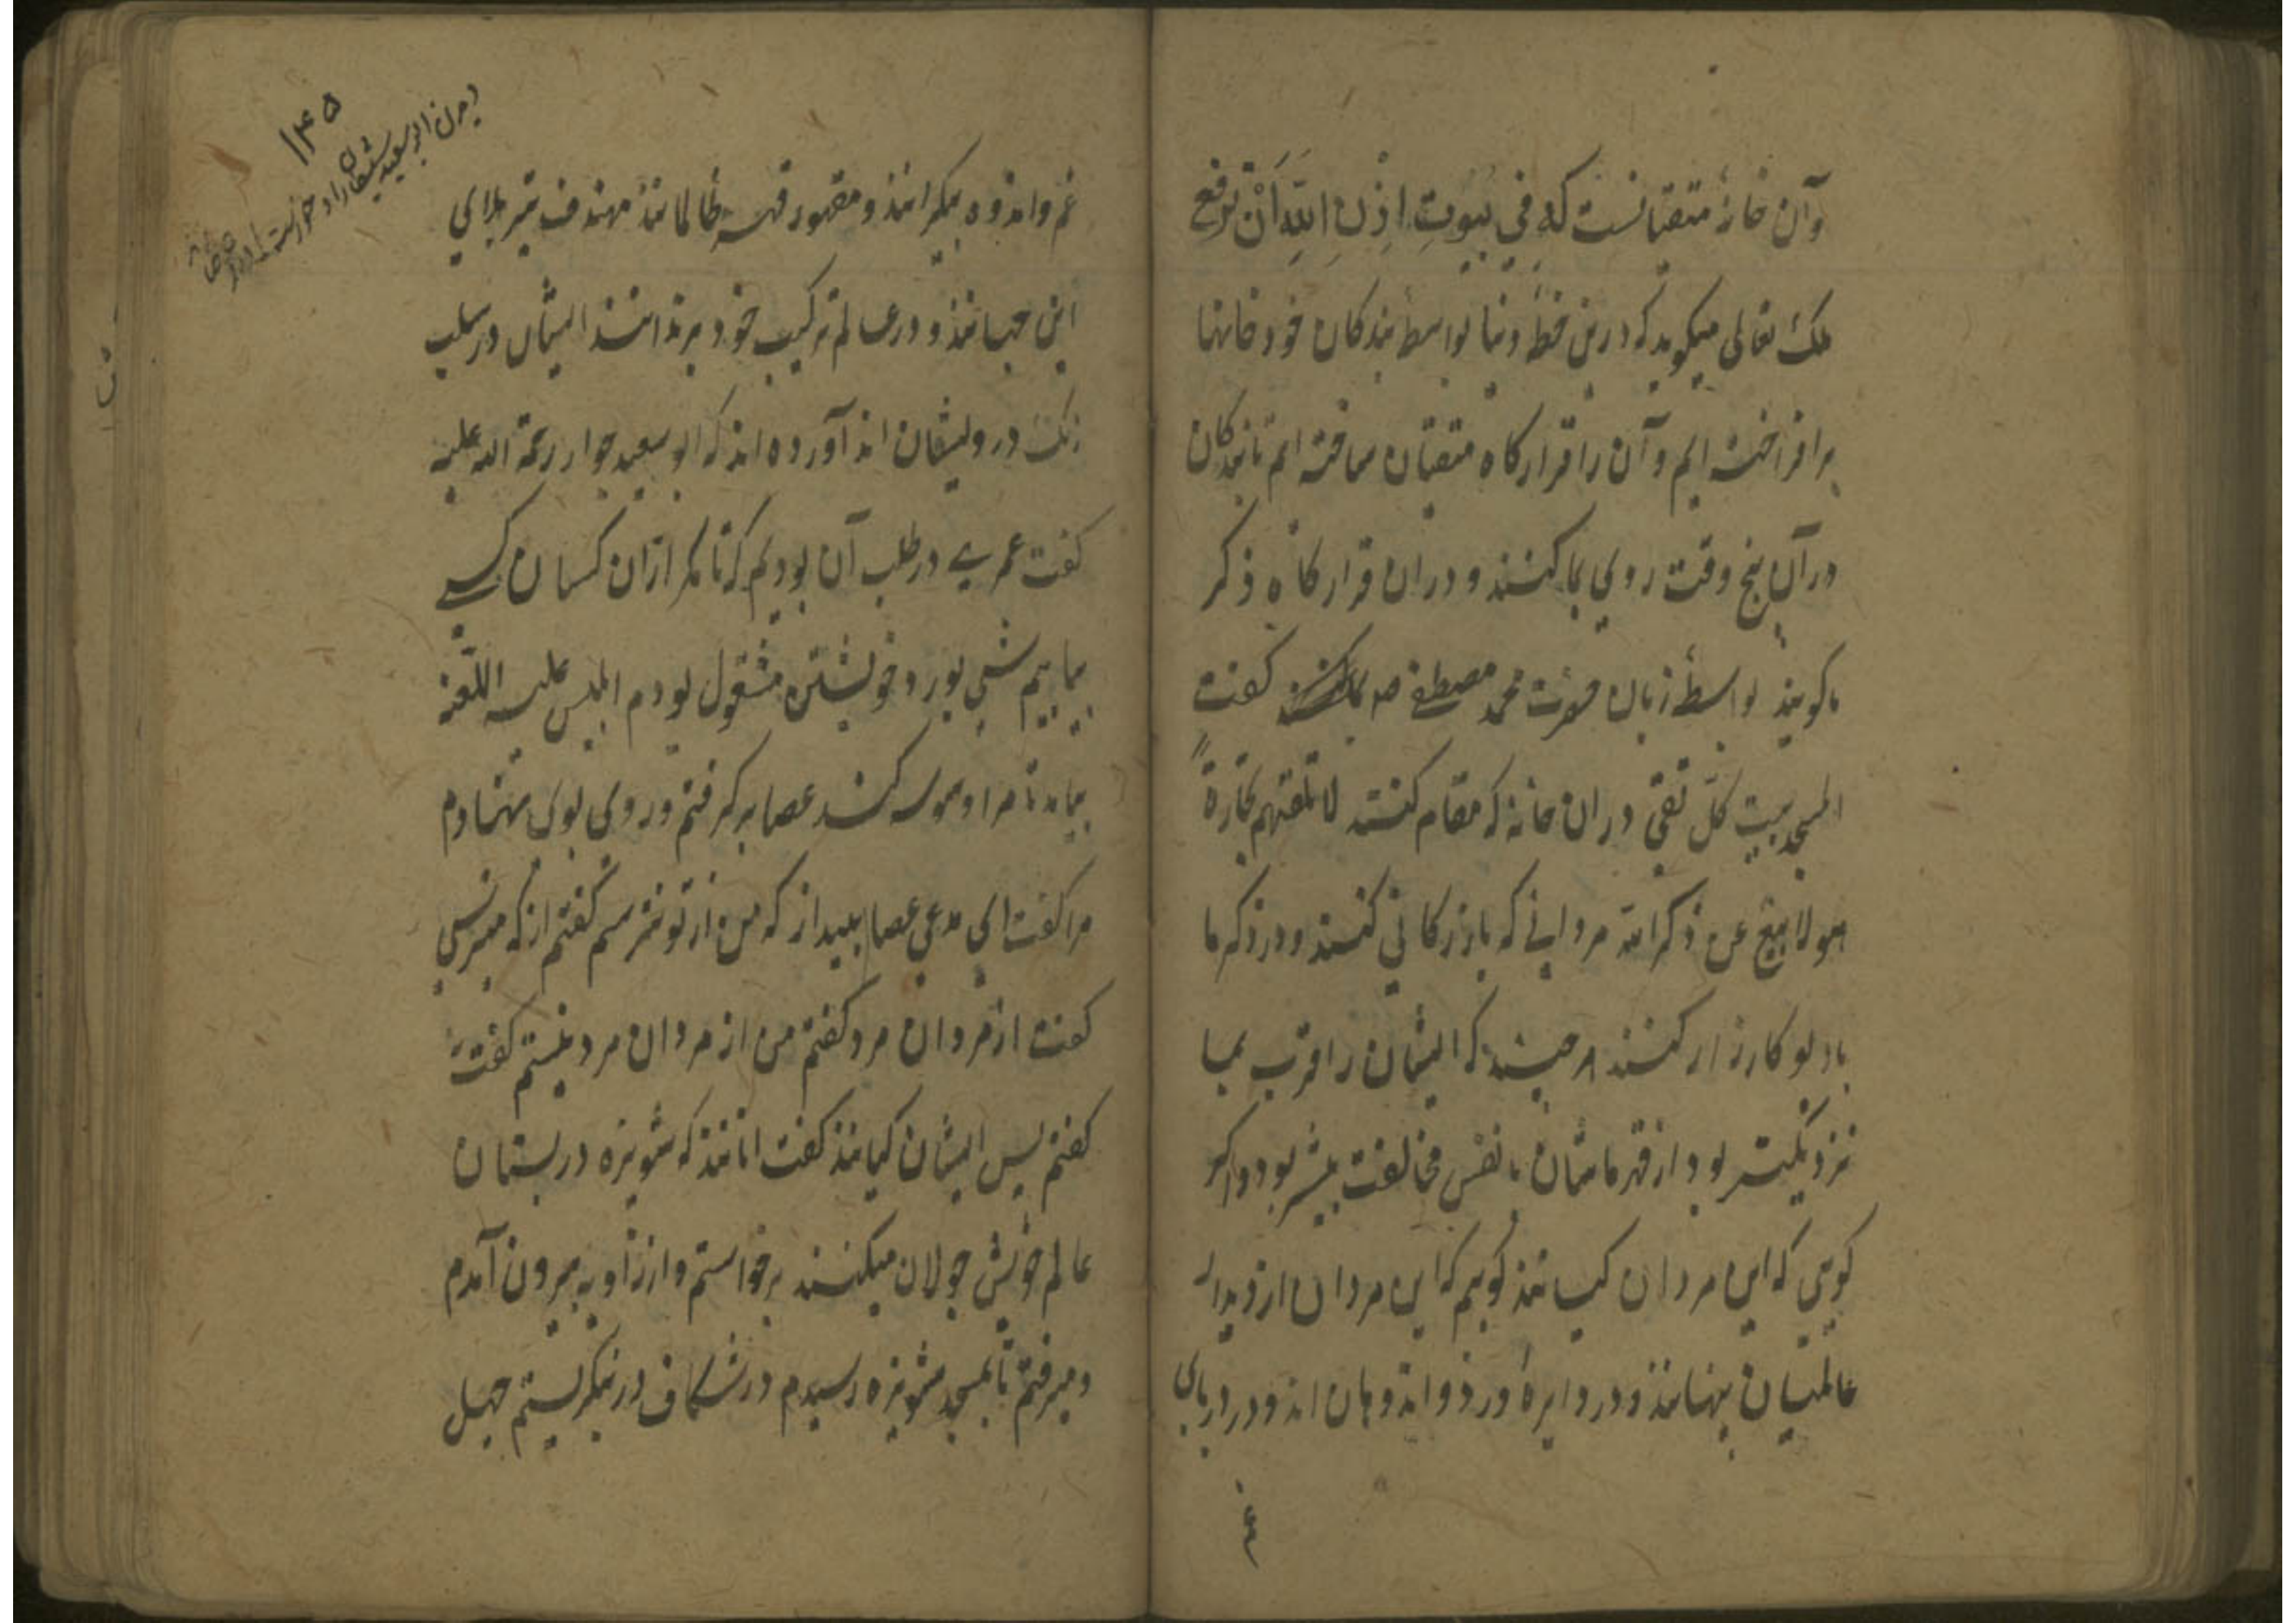 وآن خانهٔ متقیانست که فِي بُيُوتٍ اَذِنَ اللّهُ اَنْ تُرْفَعَ
ملک تعالی میکوید که درین خطهٔ دنیا بواسطهٔ بندکان خود خانها
برافراخته ایم و آن را قرارکاه متقیان ساخته ایم تا بندکان
در آن پنج وقت روی بما کنند و دران قرارکاه ذکر
ما کویند بواسطهٔ زبان حضرت محمد مصطفی صم کفت
المسجد بیت کلّ تقیّ دران خانه که مقام کنند لا تلهیهم تجارةً
هو لا بیع عن ذکر الله مردانی که بازرکانی کنند و در ذکر ما
با دیو کارزار کنند هر چند که ایشان را قرب بما
نزدیکتر بود از قهر ماشان با نفس مخالفت بیشتر بود و اکر
کویی که این مردان کیانند کویم که این مردان از دیدار
عالمیان پنهانند و در دایرهٔ درد و اندوهان اند و در دریای
غم
غم و اندوه بیکرانند و مقهور قهر ظالمانند هدف تیر بلای
این جهانند و در عالم ترکیب خود برندانند ایشان در سلب
رنک درویشان اند آورده اند که ابو سعید خراز رحمة الله علیه
کفت عمری در طلب آن بودیم که تا مکر ازان کسان کسی
بیابیم شبی بورد خویشتن مشغول بودم ابلیس علیه اللعنه
بیامد تا مرا وسوسه کند عصا برکرفتم و روی بوی نهادم
مرا کفت ای مدعی عصا بینداز که من از تو نترسم کفتم از که میترسی
کفت از مردان مرد کفتم من از مردان مرد نیستم کفت نه
کفتم پس ایشان کیانند کفت انانند که شونیزه در بستان
عالم خویش جولان میکنند برخواستم و از زاویه بیرون آمدم
و میرفتم تا بمسجد شونیزه رسیدم در شکاف در نیکریستم چهل
۱۴۵
دیدن ابو سعید شیطان را